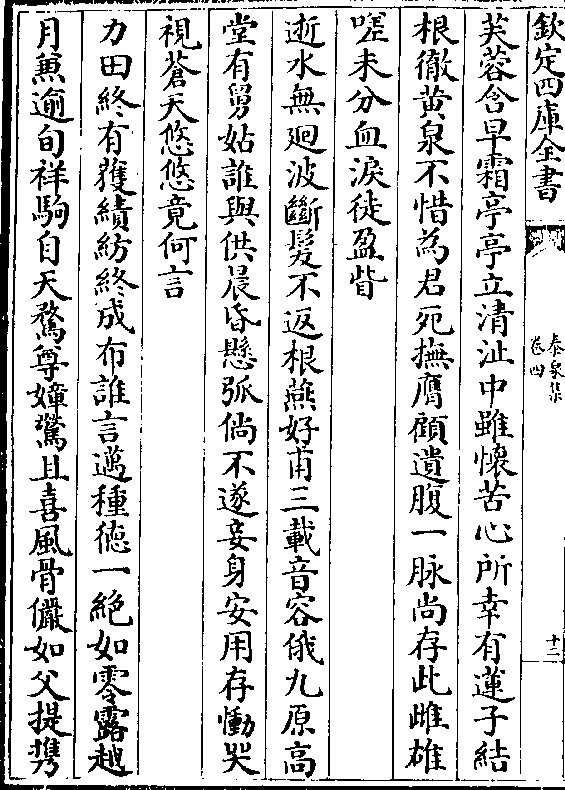 欽定四庫全書
泰泉集
卷四
十二
芙蓉含早霜亭亭立清沚中雖懷苦心所幸有蓮子結
根徹黄泉不惜為君死撫膺顧遺腹一脉尚存此雌雄
嗟未分血淚徒盈眥
逝水無廻波斷髮不返根燕好甫三載音容俄九原高
堂有舅姑誰與供晨昏懸弧倘不遂妾身安用存慟哭
視蒼天悠悠竟何言
力田終有穫績紡終成布誰言邁種徳一絶如零露越
月兼逾旬祥駒自天騖尊嫜驚且喜風骨儼如父提攜